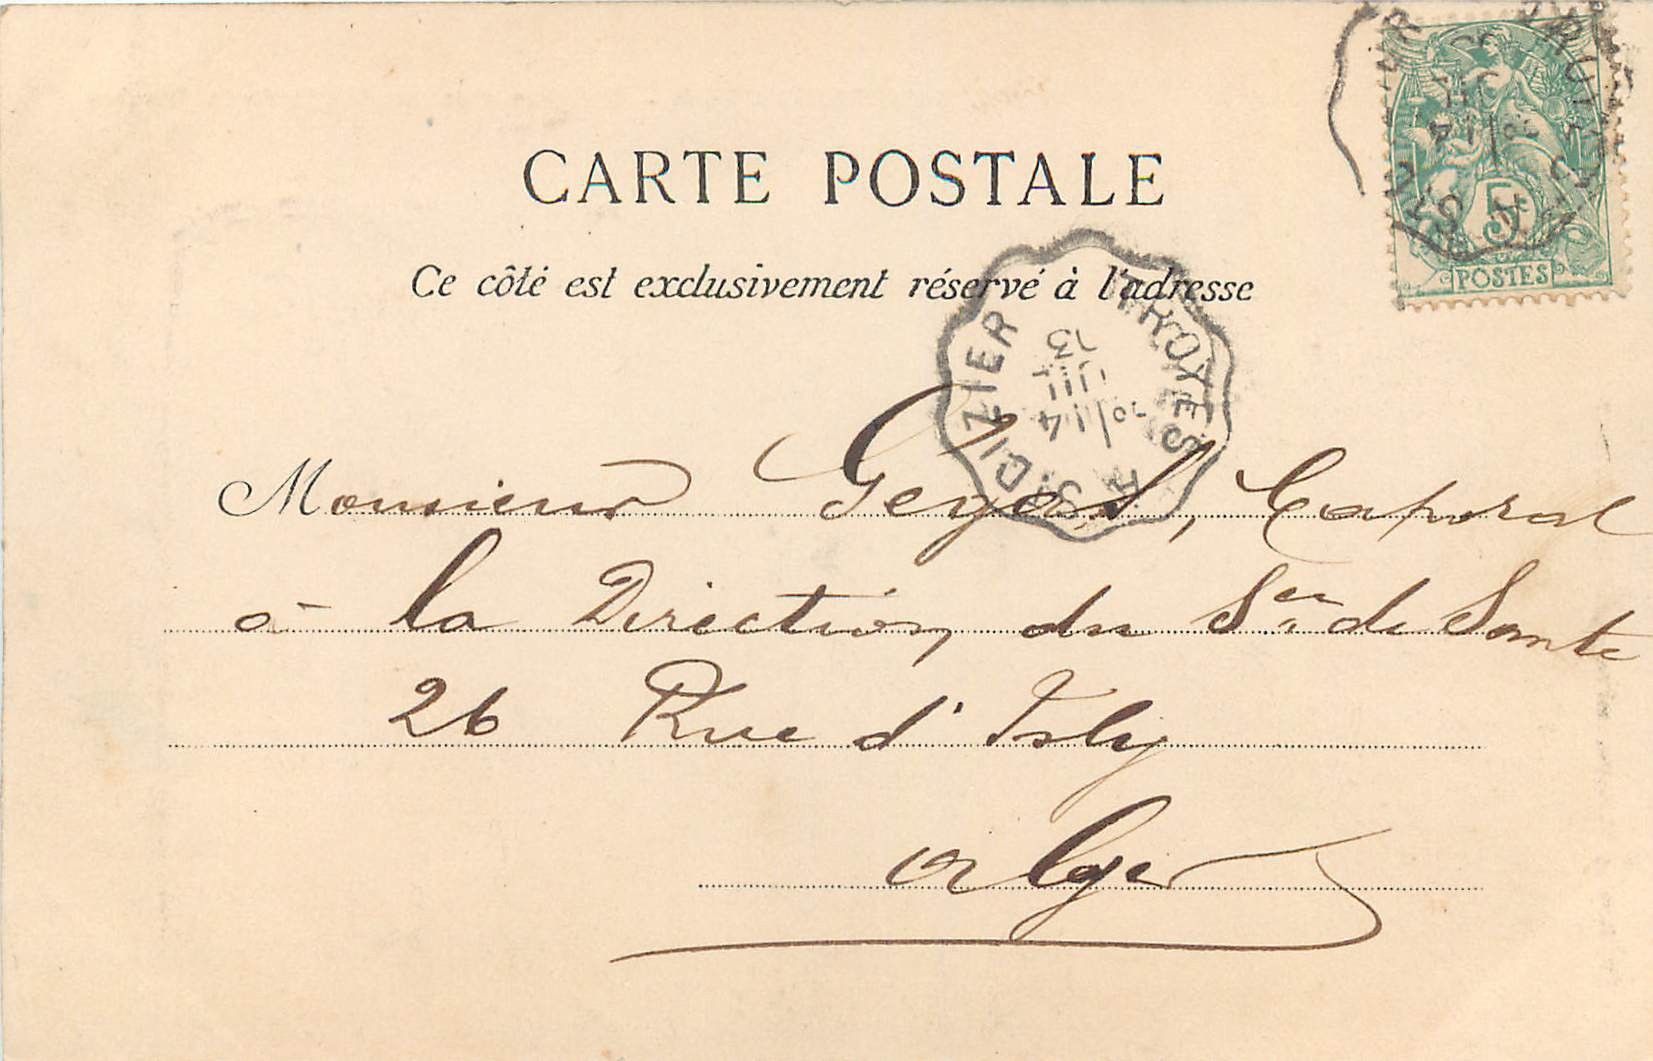 CARTE POSTALE
Ce côté est exclusivement réservé à l'adresse
5
POSTES
TROYES A St DIZIER
13
JUIL
04
Monsieur Caporal
à la Direction du Sce de Santé
26 Rue d'Isly
Alger